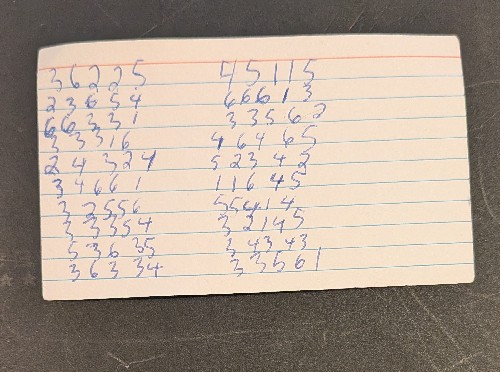 36225 45115
23654 66613
66331 33562
33316 46465
24324 52342
34661 11645
32556 55414
33354 32145
53635 34343
36334 33561